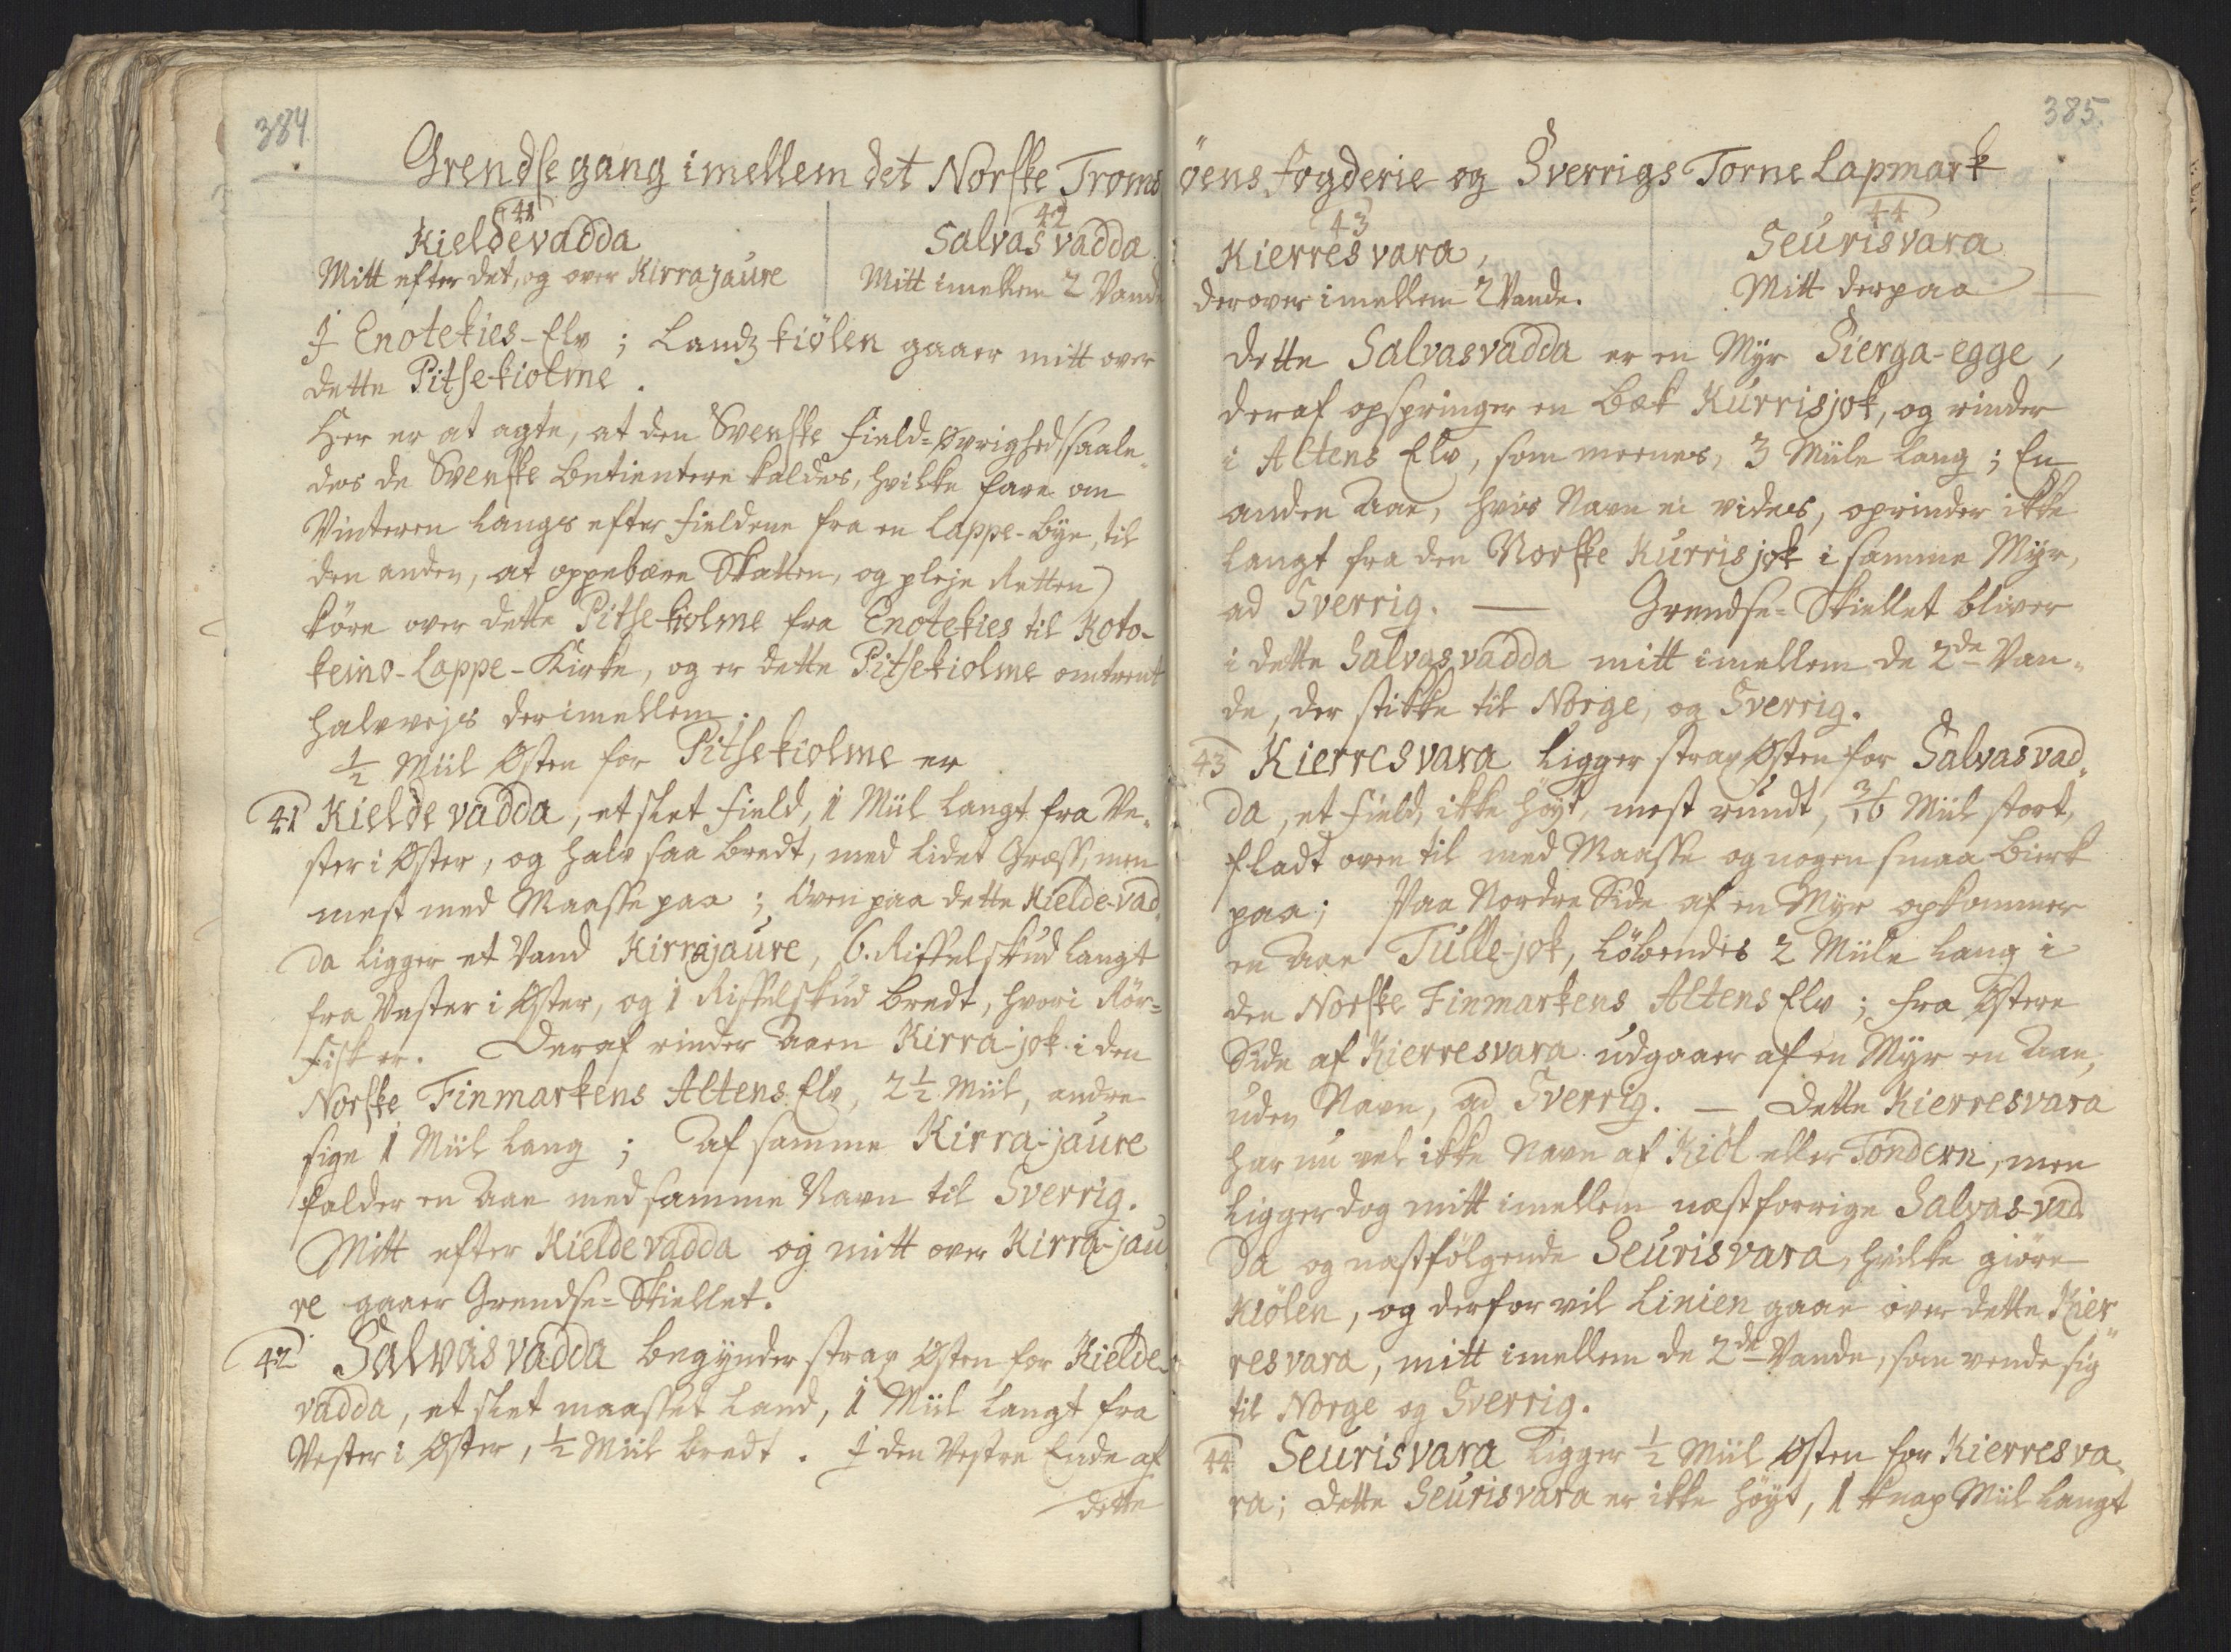 384.
Grendse gang imellem det Norske Troms
41
Kieldevadda
Mitt efter det, og over Kirrajaure
42
Salvasvadda
Mitt imellem 2 Vande
I Enotekies-Elv; Landz kiölen gaaer mitt over
dette Pitsekiolme.
Her er at agte, at den Svenske Field-Øvrighed (saale„
des de Svenske Betientere kaldes, hvilke fare om
Vinteren langs efter Fieldene fra en Lappe-Bye, til
den anden, at oppebære Skatten, og pleje Retten)
köre over dette Pitsekiolme fra Enotekies til Koto-
keino-Lappe-Kirke, og er dette Pitsekiolme omtrent
halvvejs derimellem.
½ Miil Østen for Pitsekiolme er
41 Kieldevadda, et slet Field, 1 Miil langt fra Ve„
ster i Øster, og halv saa bredt, med lidet Græss, men
mest med Maasse paa; Oven paa dette Kielde-vad„
da ligger et Vand Kirrajaure, 6. Riffelskud langt
fra Vester i Øster, og 1 Riffelskud bredt, hvori Rör-
Fisk er. Deraf rinder Aaen Kirra-jok i den
Norske Finmarkens Altens Elv, 2½ Miil, andre
sige 1 Miil lang; Af samme Kirra-jaure
falder en Aae med samme Navn til Sverrig.
Mitt efter Kieldevadda og mitt over Kirra-jau„
re gaaer Grendse-Skiellet.
42 Salvasvadda begynder strax Østen for Kielde
vadda, et slet maasset Land, 1 Miil langt fra
Vester i Øster, ½ Miil bredt. I den Vestre Ende af
dette
385.
öens Fogderie og Sverrigs Torne Lapmark
43
Kierresvara,
derover imellem 2 Vande.
44
Seurisvara
Mitt derpaa
dette Salvasvadda er en Myr Sierga-egge,
deraf opspringer en Bæk Kurrisjok, og rinder
i Altens Elv, som meenes, 3 Miile lang; En
anden Aae, hvis Navn ei vides, oprinder ikke
langt fra den Norske Kurrisjok i samme Myr,
ad Sverrig. — Grendse-Skiellet bliver
i dette Salvasvadda mitt imellem de 2de Van„
de, der stikke til Norge, og Sverrig.
43 Kierresvara ligger strax Østen for Salvasvad„
da, et Field, ikke höyt, mest rundt, 3/16 Miil stort,
fladt oven til med Maasse og nogen smaa Bierk
paa; Paa Nordre Side af en Myr opkommer
en Aae Tulle-jok, löbendes 2 Miile lang i
den Norske Finmarkens Altens Elv; fra Østere
Side af Kierresvara udgaaer af en Myr en Aae,
uden Navn, ad Sverrig. — Dette Kierresvara
har nu vel ikke Navn af Kiöl eller Tondern, men
ligger dog mitt imellem næstforrige Salvas-vad
da og næstfölgende Seurisvara, hvilke giöre
Kiölen, og derfor vil Linien gaae over dette Kier„
resvara, mitt imellem de 2de Vande, som vende sig
til Norge og Sverrig.
44 Seurisvara ligger ½ Miil Østen for Kierresva„
ra; dette Seurisvara er ikke höyt, 1 knap Miil langt